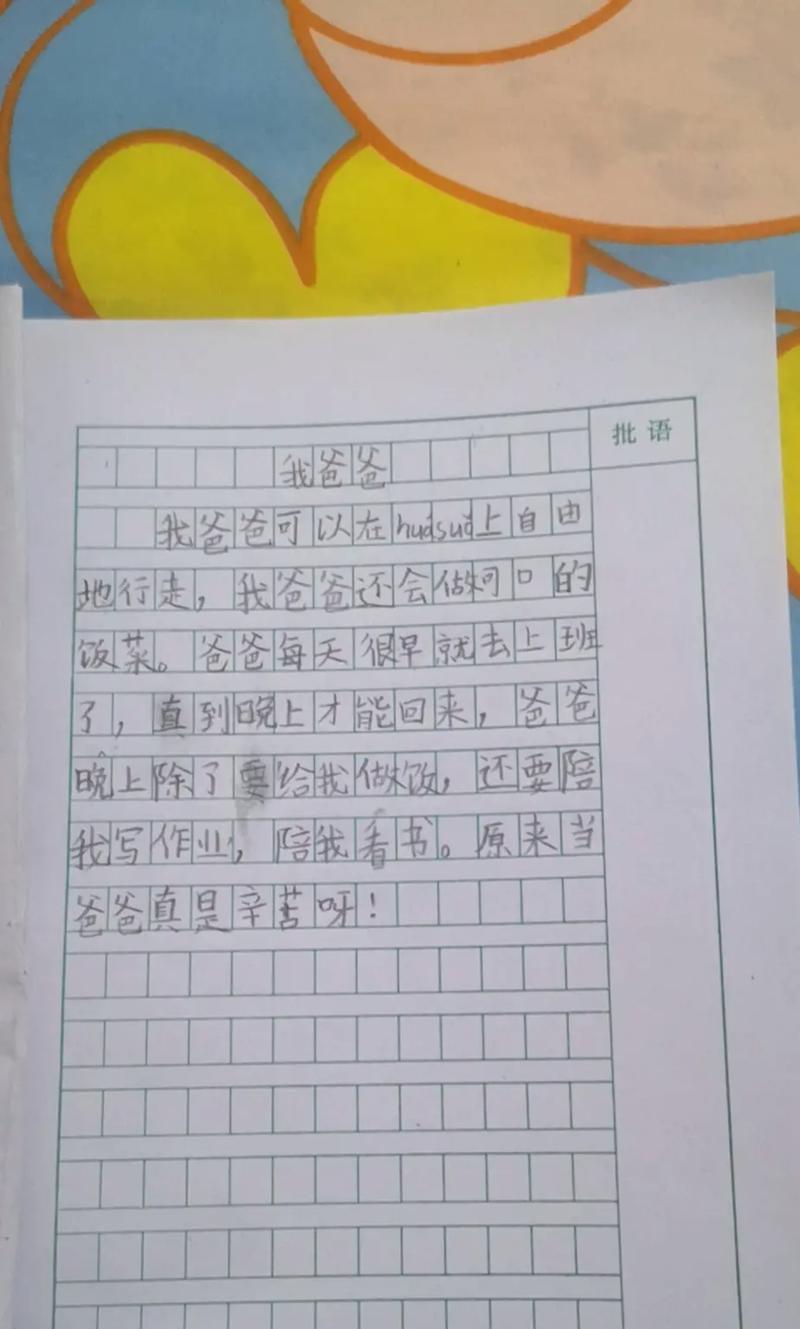 批语
我爸爸
我爸爸可以在hudsud上自由
地行走，我爸爸还会做可口的
饭菜。爸爸每天很早就去上班
了，直到晚上才能回来，爸爸
晚上除了要给我做饭，还要陪
我写作业，陪我看书。原来当
爸爸真是辛苦呀！